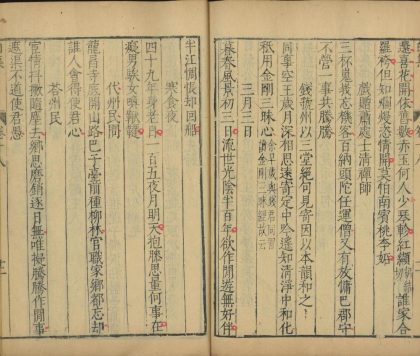 還喜花開依舊數赤玉何人少琴軫紅纈誰家合
羅袴但知爛熳恣情開莫怕南賓桃李妬
戲贈蕭處士清禪師
三杯嵬峨忘機客百衲頭陀任運僧又有放慵巴郡守
不營一事共騰騰
錢虢州以三堂絕句見寄因以本韻和之
同事空王歲月深相思遠寄定中吟遙知清淨中和化
秖用金剛三昧心 余早歲與錢君同習讀金剛三昧經故云
三月三日
暮春風景初三日流世光陰半百年欲作閒遊無好伴
半江惆悵却回船
寒食夜
四十九年身老日一百五夜月明天抱膝思量何事在
癡男騃女喚鞦韆
代州民問
龍昌寺底開山路巴子臺前種柳林官職家鄉都忘却
誰人會得使君心
荅州民
宦情抖擻隨塵去鄉思磨銷逐日無唯擬騰騰作閒事
遮渠不道使君愚